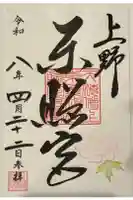 上野
東照宮
令和
八年四月二十二日奉拝